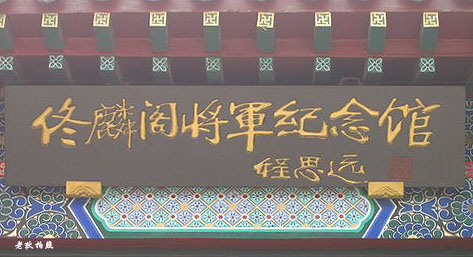 佟麟阁将軍纪念馆
程思远
老狄拍照